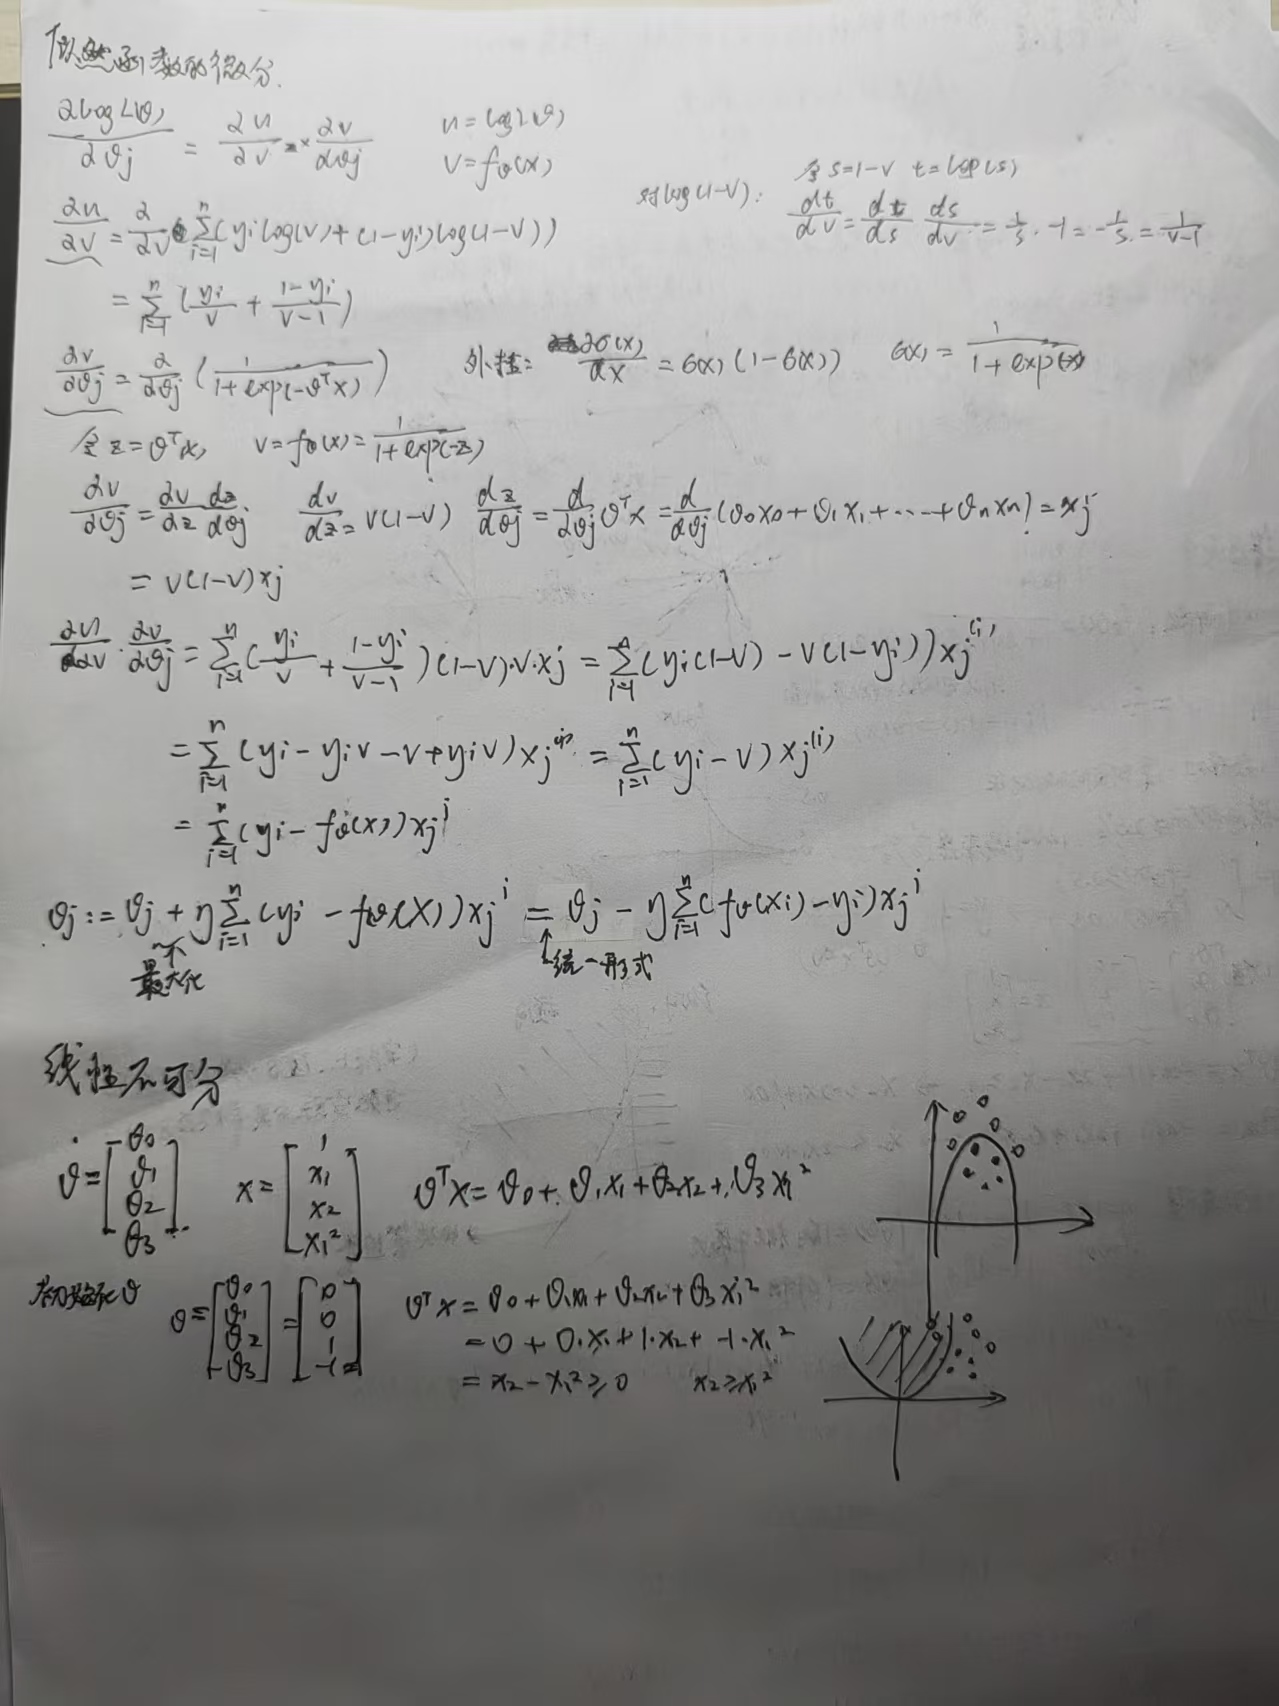 似然函数的微分.
∂logL(θ)/∂θj = ∂u/∂v × ∂v/∂θj    u = logL(θ)
v = fθ(x)
∂u/∂v = ∂/∂v Σ_{i=1}^{n} (yi log(v) + (1-yi) log(1-v))    对log(1-v):    令 s=1-v  t=log(s)
dt/dv = dt/ds ds/dv = 1/s · -1 = -1/s = 1/(v-1)
= Σ_{i=1}^{n} (yi/v + (1-yi)/(v-1))
∂v/∂θj = ∂/∂θj (1/(1+exp(-θ^T x)))    ∂σ(x)/dx = σ(x)(1-σ(x))    σ(x) = 1/(1+exp(-x))
令 z=θ^T x,    v=fθ(x)=1/(1+exp(-z))
∂v/∂θj = ∂v/∂z dz/dθj    dv/dz = v(1-v)    dz/dθj = d/dθj θ^T x = d/dθj (θ0x0+θ1x1+⋯+θnxn) = xj
= v(1-v)xj
∂u/∂v · ∂v/∂θj = Σ_{i=1}^{n} (yi/v + (1-yi)/(v-1))(1-v)·v·xj = Σ_{i=1}^{n} (yi(1-v) - v(1-yi))xj^(i)
= Σ_{i=1}^{n} (yi - yiv - v + yiv)xj^(i) = Σ_{i=1}^{n} (yi - v)xj^(i)
= Σ_{i=1}^{n} (yi - fθ(x))xj^i
θj := θj + η Σ_{i=1}^{n} (yi - fθ(x))xj^i = θj - η Σ_{i=1}^{n} (fθ(xi) - yi)xj^i
最大化    统一形式
线性不可分
θ = [θ0 θ1 θ2 θ3]    x = [1 x1 x2 x1²]    θ^T x = θ0 + θ1x1 + θ2x2 + θ3x1²
若初始化θ    θ = [θ0 θ1 θ2 θ3] = [0 0 1 -1]    θ^T x = θ0 + θ1x1 + θ2x2 + θ3x1²
= 0 + 0·x1 + 1·x2 + -1·x1²
= x2 - x1² ≥ 0    x2 ≥ x1²